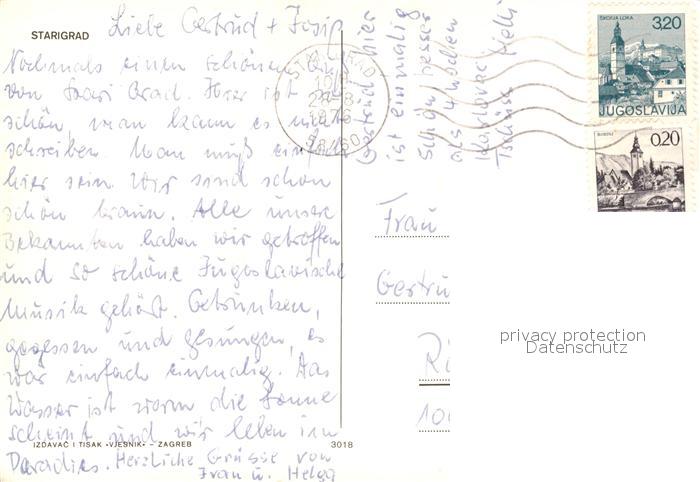 STARIGRAD
Liebe Gertrud + Josip
Nochmals einen schönen Gruß
von Stari Grad. Hier ist so
schön, man kann es nicht
schreiben. Man muß einmal
hier sein. Wir sind schon
schön braun. Alle unsere
Bekannten haben wir getroffen
und so schöne Jugoslavische
Musik gehört. Getrunken,
gegessen und gesungen, es
war einfach einmalig. Das
Wasser ist warm die Sonne
scheint und wir leben im
Paradies. Herzliche Grüsse von
Frau u. Helga
IZDAVAČ I TISAK «VJESNIK» – ZAGREB
3018
Gertrud hier
ist einmalig
Schön besser
als 4 Wochen
Karlovac
Tschüss Helli
ŠKOFJA LOKA
3,20
JUGOSLAVIJA
BOHINJ
0,20
Frau
Gertru
Ri
100
privacy protection
Datenschutz